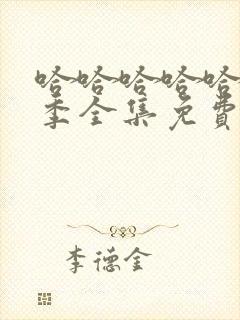 哈哈哈哈哈
季全集免費
李德金